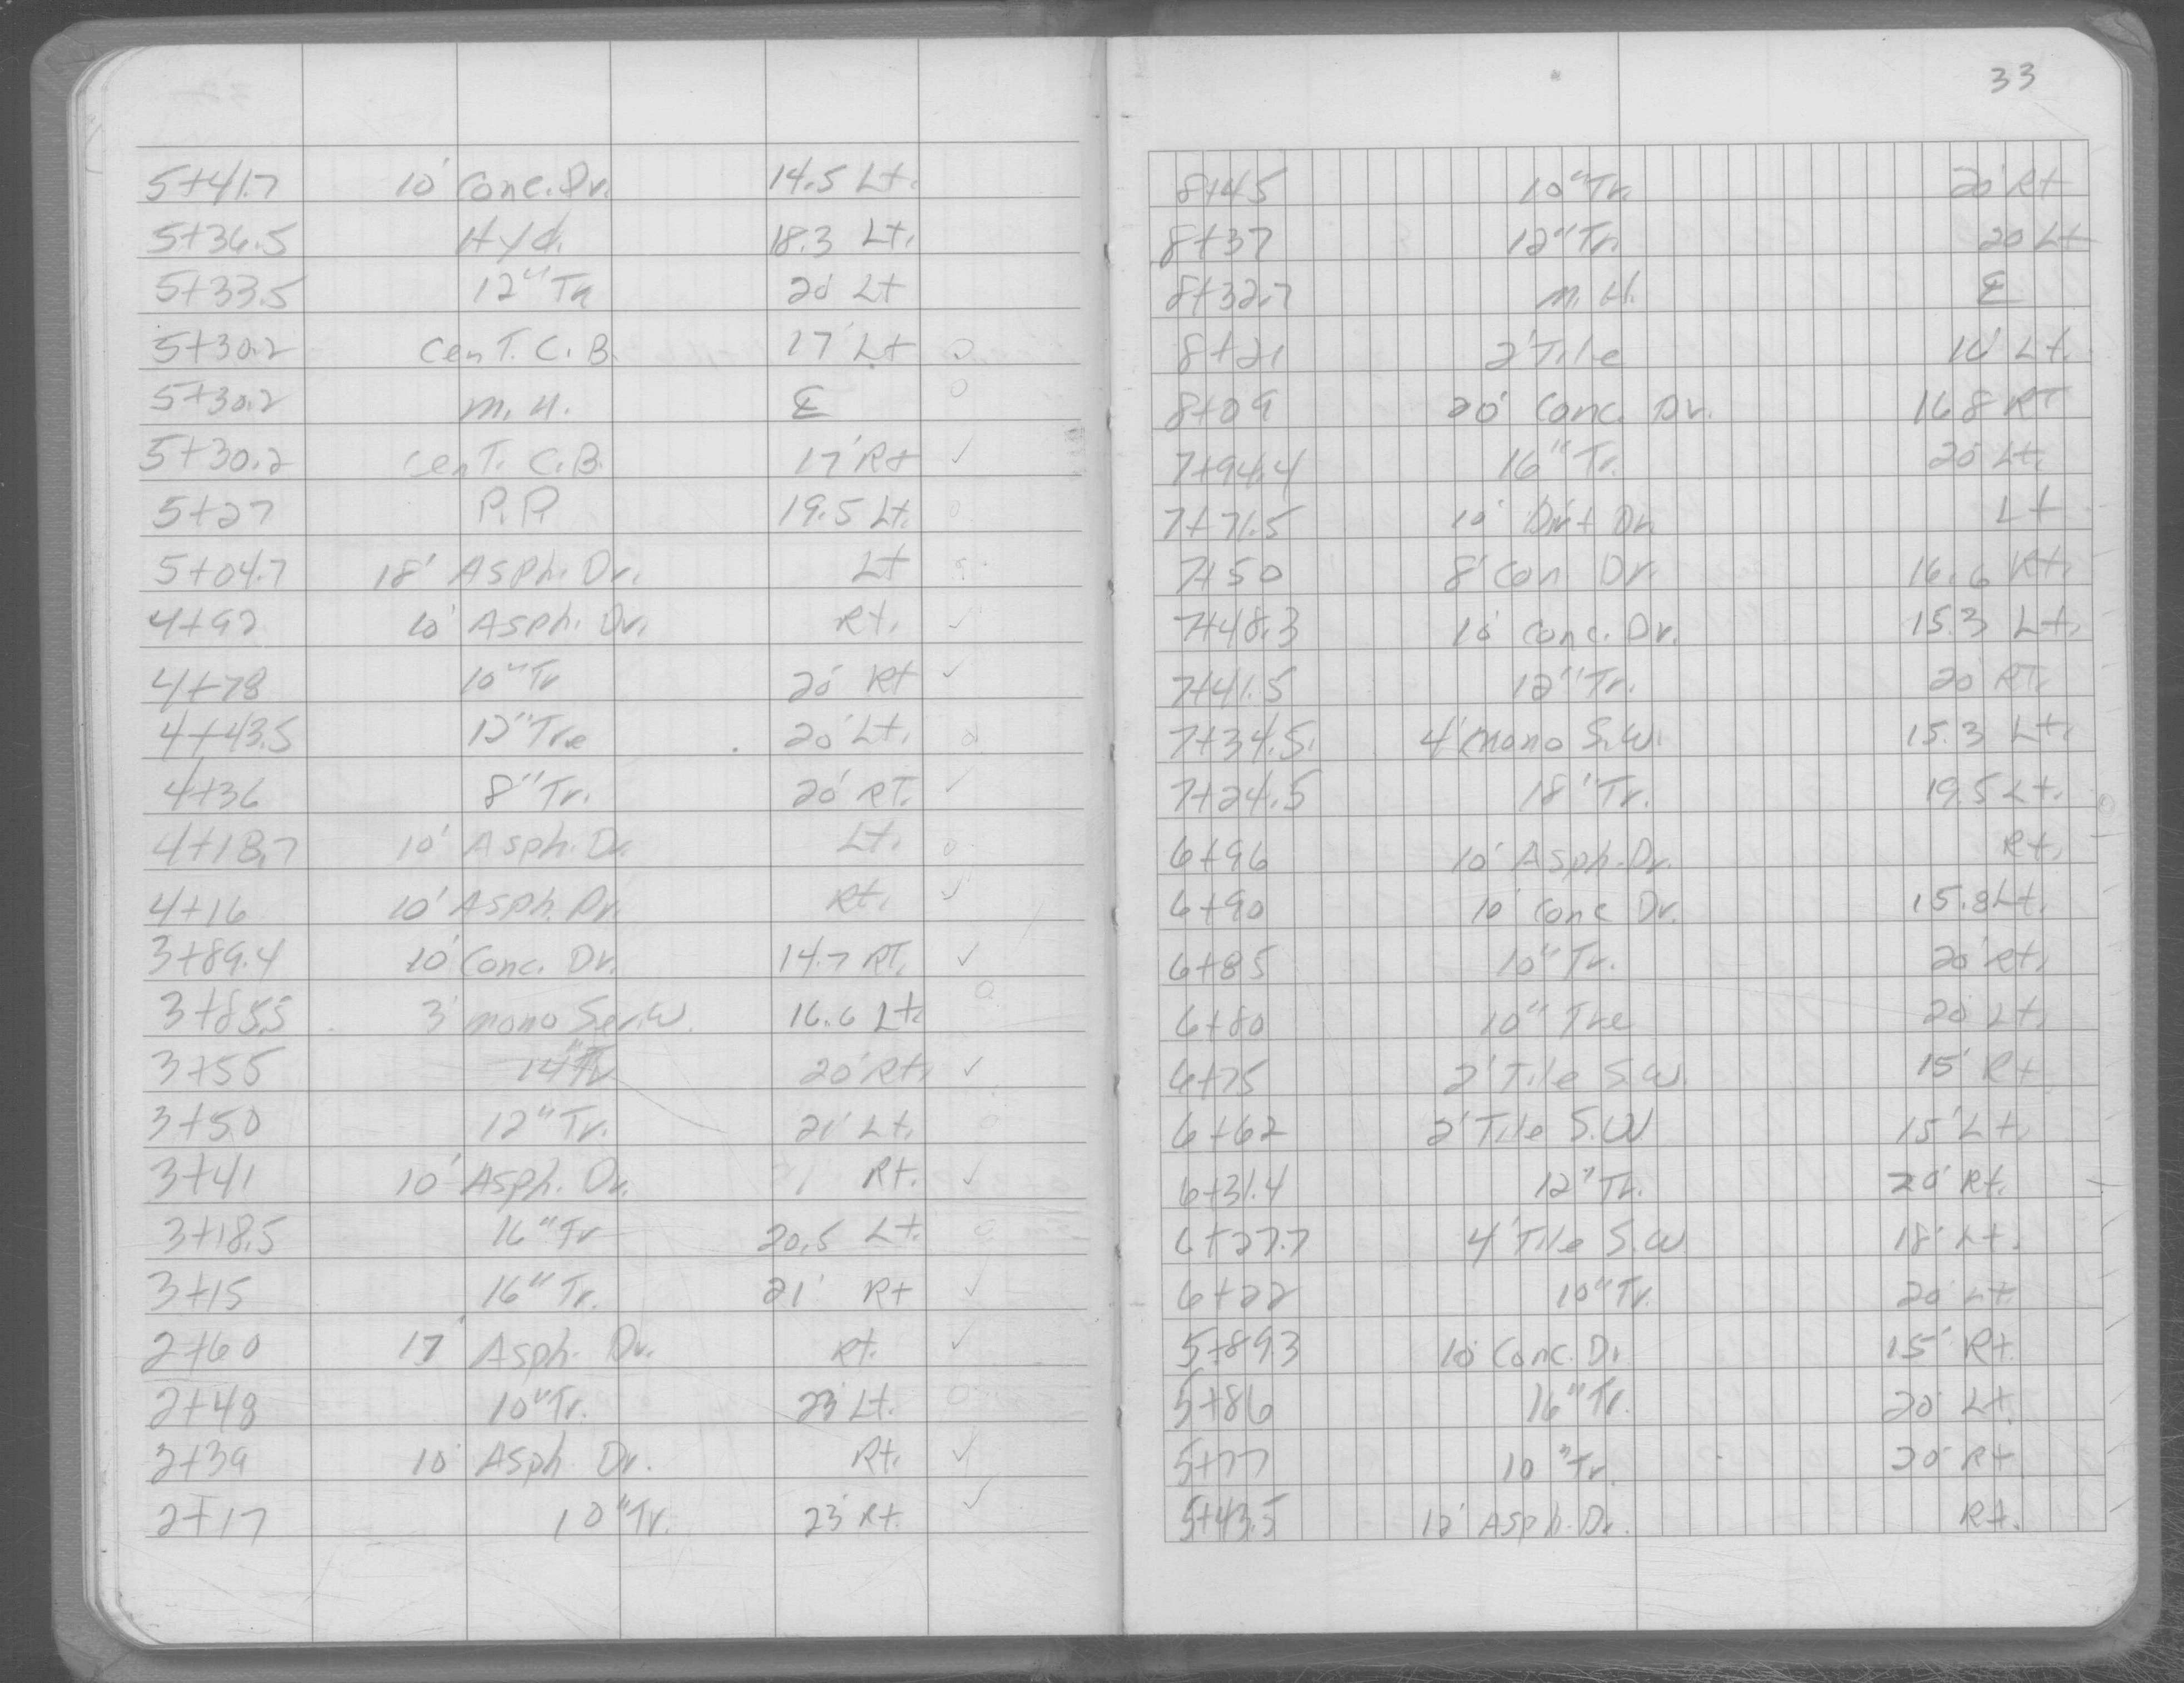 5+41.7 10' Conc. Dr. 14.5 Lt.
5+36.5 Hyd. 18.3 Lt.
5+33.5 12" Tr. 20' Lt
5+30.2 Cen T. C. B. 17' Lt o
5+30.2 M. H. ℄ o
5+30.2 Cen T. C. B. 17' Rt ✓
5+27 P. P. 19.5 Lt. o
5+04.7 18' Asph. Dr. Lt o
4+92 10' Asph. Dr. Rt. ✓
4+78 10" Tr 20' Rt ✓
4+43.5 12" Tre 20' Lt. o
4+36 8" Tr. 20' RT. ✓
4+18.7 10' Asph. Dr. Lt. o
4+16 10' Asph. Dr. Rt. ✓
3+89.4 10' Conc. Dr. 14.7 RT. ✓
3+85.5 3' mono Ser. W. 16.6 Lt. o
3+55 14" Tr 20' Rt. ✓
3+50 12" Tr. 21' Lt. o
3+41 10' Asph. Dr. Rt. ✓
3+18.5 16" Tr 20.5 Lt. o
3+15 16" Tr. 21' Rt ✓
2+60 17' Asph. Dr. Rt. ✓
2+48 10" Tr. 23' Lt. o
2+39 10' Asph Dr. Rt. ✓
2+17 10" Tr. 23' Rt. ✓
33
8+45 10" Tr. 20' Rt
8+37 12" Tr. 20 Lt
8+32.7 M. H. ℄
8+21 2' Tile Lt.
8+09 20' Conc. Dr. 16.8 RT
7+94.4 16" Tr. 20' Lt.
7+71.5 10' Dirt Dr. Lt
7+50 8' Con. Dr. 16.6 Rt.
7+48.3 10' Conc. Dr. 15.3 Lt.
7+41.5 12" Tr. 20' RT.
7+34.5 4' mono S.W. 15.3 Lt.
7+24.5 18" Tr. 19.5 Lt. o
6+96 10' Asph. Dr. Rt.
6+90 10' Conc Dr. 15.8 Lt.
6+85 10" Tr. 20' Rt.
6+80 10" Tre 20' Lt.
6+75 2' Tile S.W. 15' Rt
6+62 2' Tile S.W 15' Lt.
6+31.4 12" Tr. 20' Rt.
6+27.7 4' Tile S.W 18' Lt.
6+22 10" Tr. 20' Lt.
5+89.3 10' Conc. Dr 15' Rt.
5+86 16" Tr. 20' Lt.
5+77 10" Tr. 20' Rt
5+43.5 12' Asph. Dr. Rt.